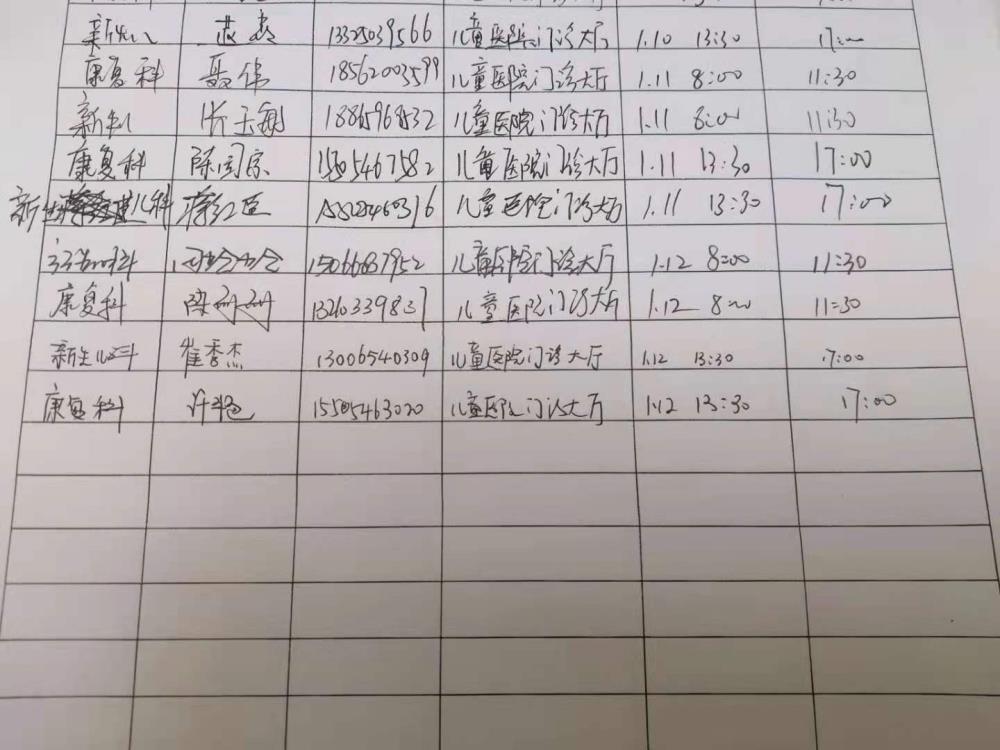 新生儿 燕 13325039566 儿童医院门诊大厅 1.10 13:30 17:00
康复科 聂伟 18562003599 儿童医院门诊大厅 1.11 8:00 11:30
新生儿 张玉敏 儿童医院门诊大厅 1.11 8:00 11:30
康复科 陈国宗 1505467582 儿童医院门诊大厅 1.11 13:30 17:00
新生儿科 蒋红臣 儿童医院门诊大厅 1.11 13:30 17:00
15066637952 儿童医院门诊大厅 1.12 8:00 11:30
康复科 梁丹丹 儿童医院门诊大厅 1.12 8:00 11:30
新生儿科 崔秀杰 13006540309 儿童医院门诊大厅 1.12 13:30 17:00
康复科 15505463020 儿童医院门诊大厅 1.12 13:30 17:00